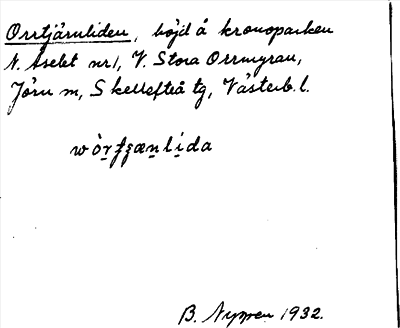 Orrtjärnliden, höjd å kronoparken
N. Åselet nr 1, V. Stora Orrmyran,
Jörn sn, Skellefteå tg, Västerb. l.
B. Nyppen 1932.